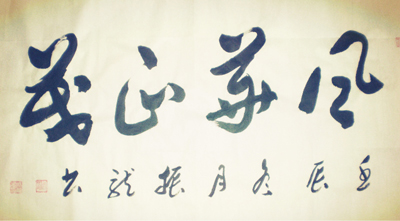 风華正茂
壬辰冬月振龍书